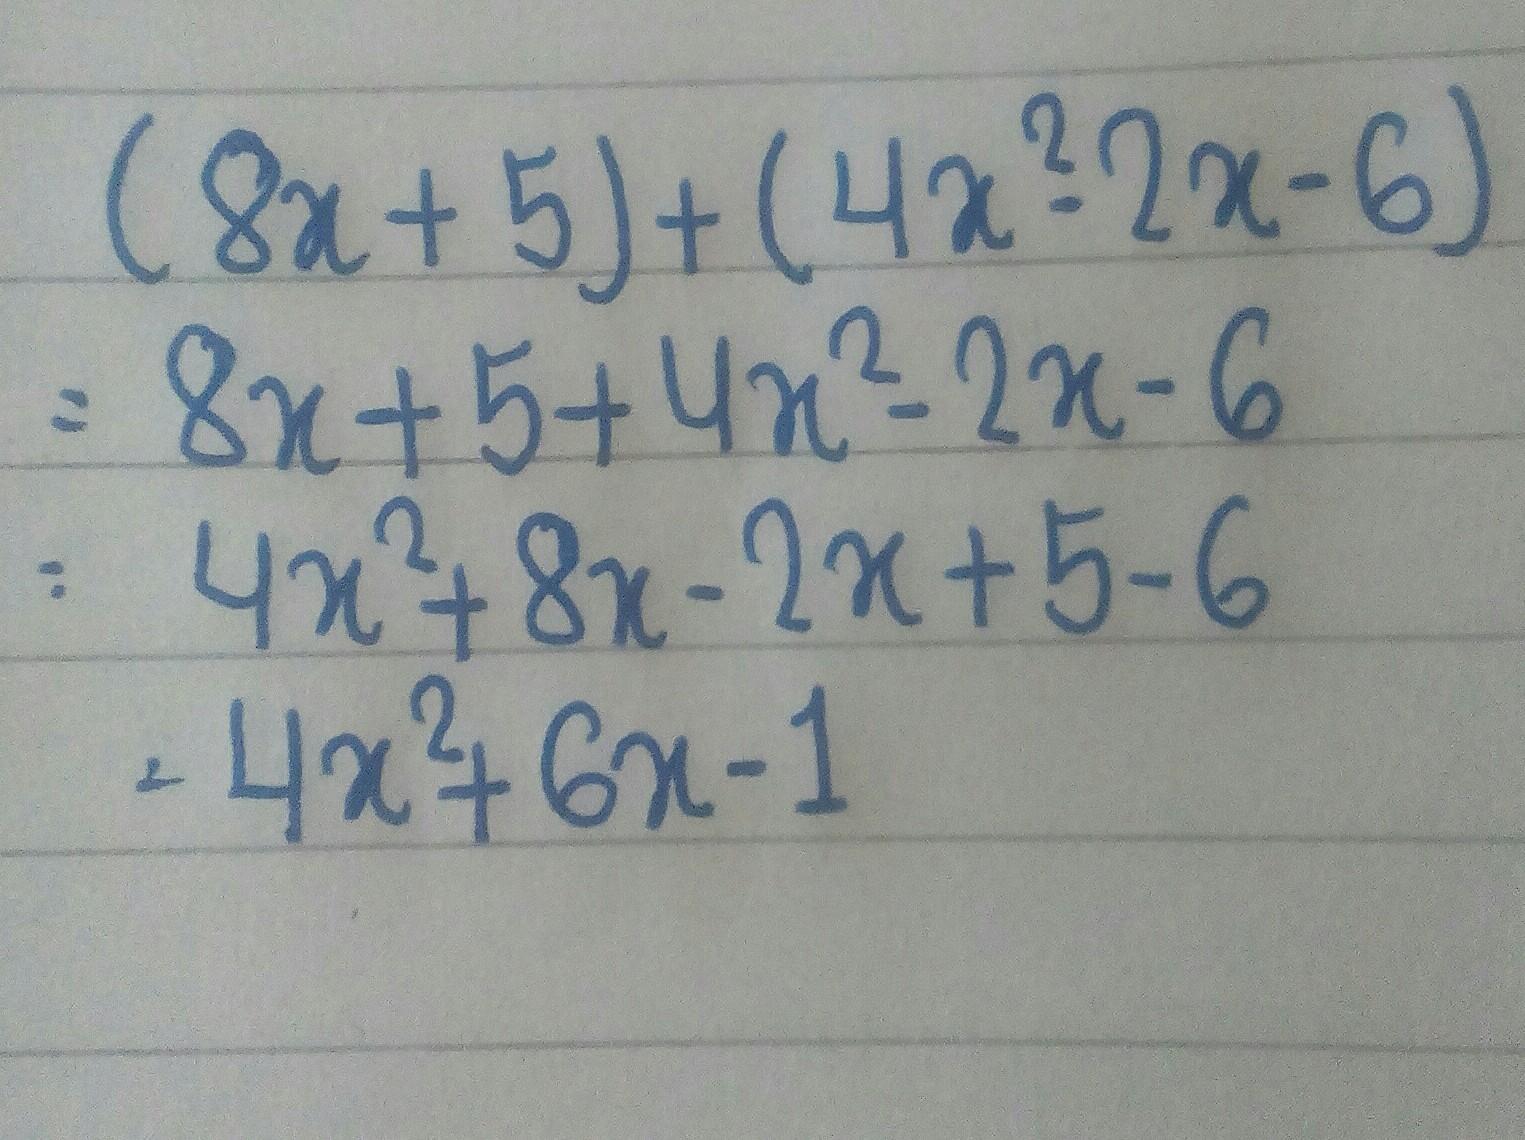 (8x + 5) + (4x² - 2x - 6)
= 8x + 5 + 4x² - 2x - 6
= 4x² + 8x - 2x + 5 - 6
= 4x² + 6x - 1